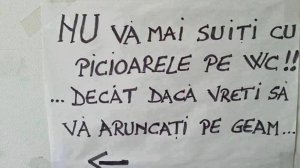 NU VĂ MAI SUIȚI CU
PICIOARELE PE WC!!
...DECÂT DACĂ VREȚI SĂ
VĂ ARUNCAȚI PE GEAM...